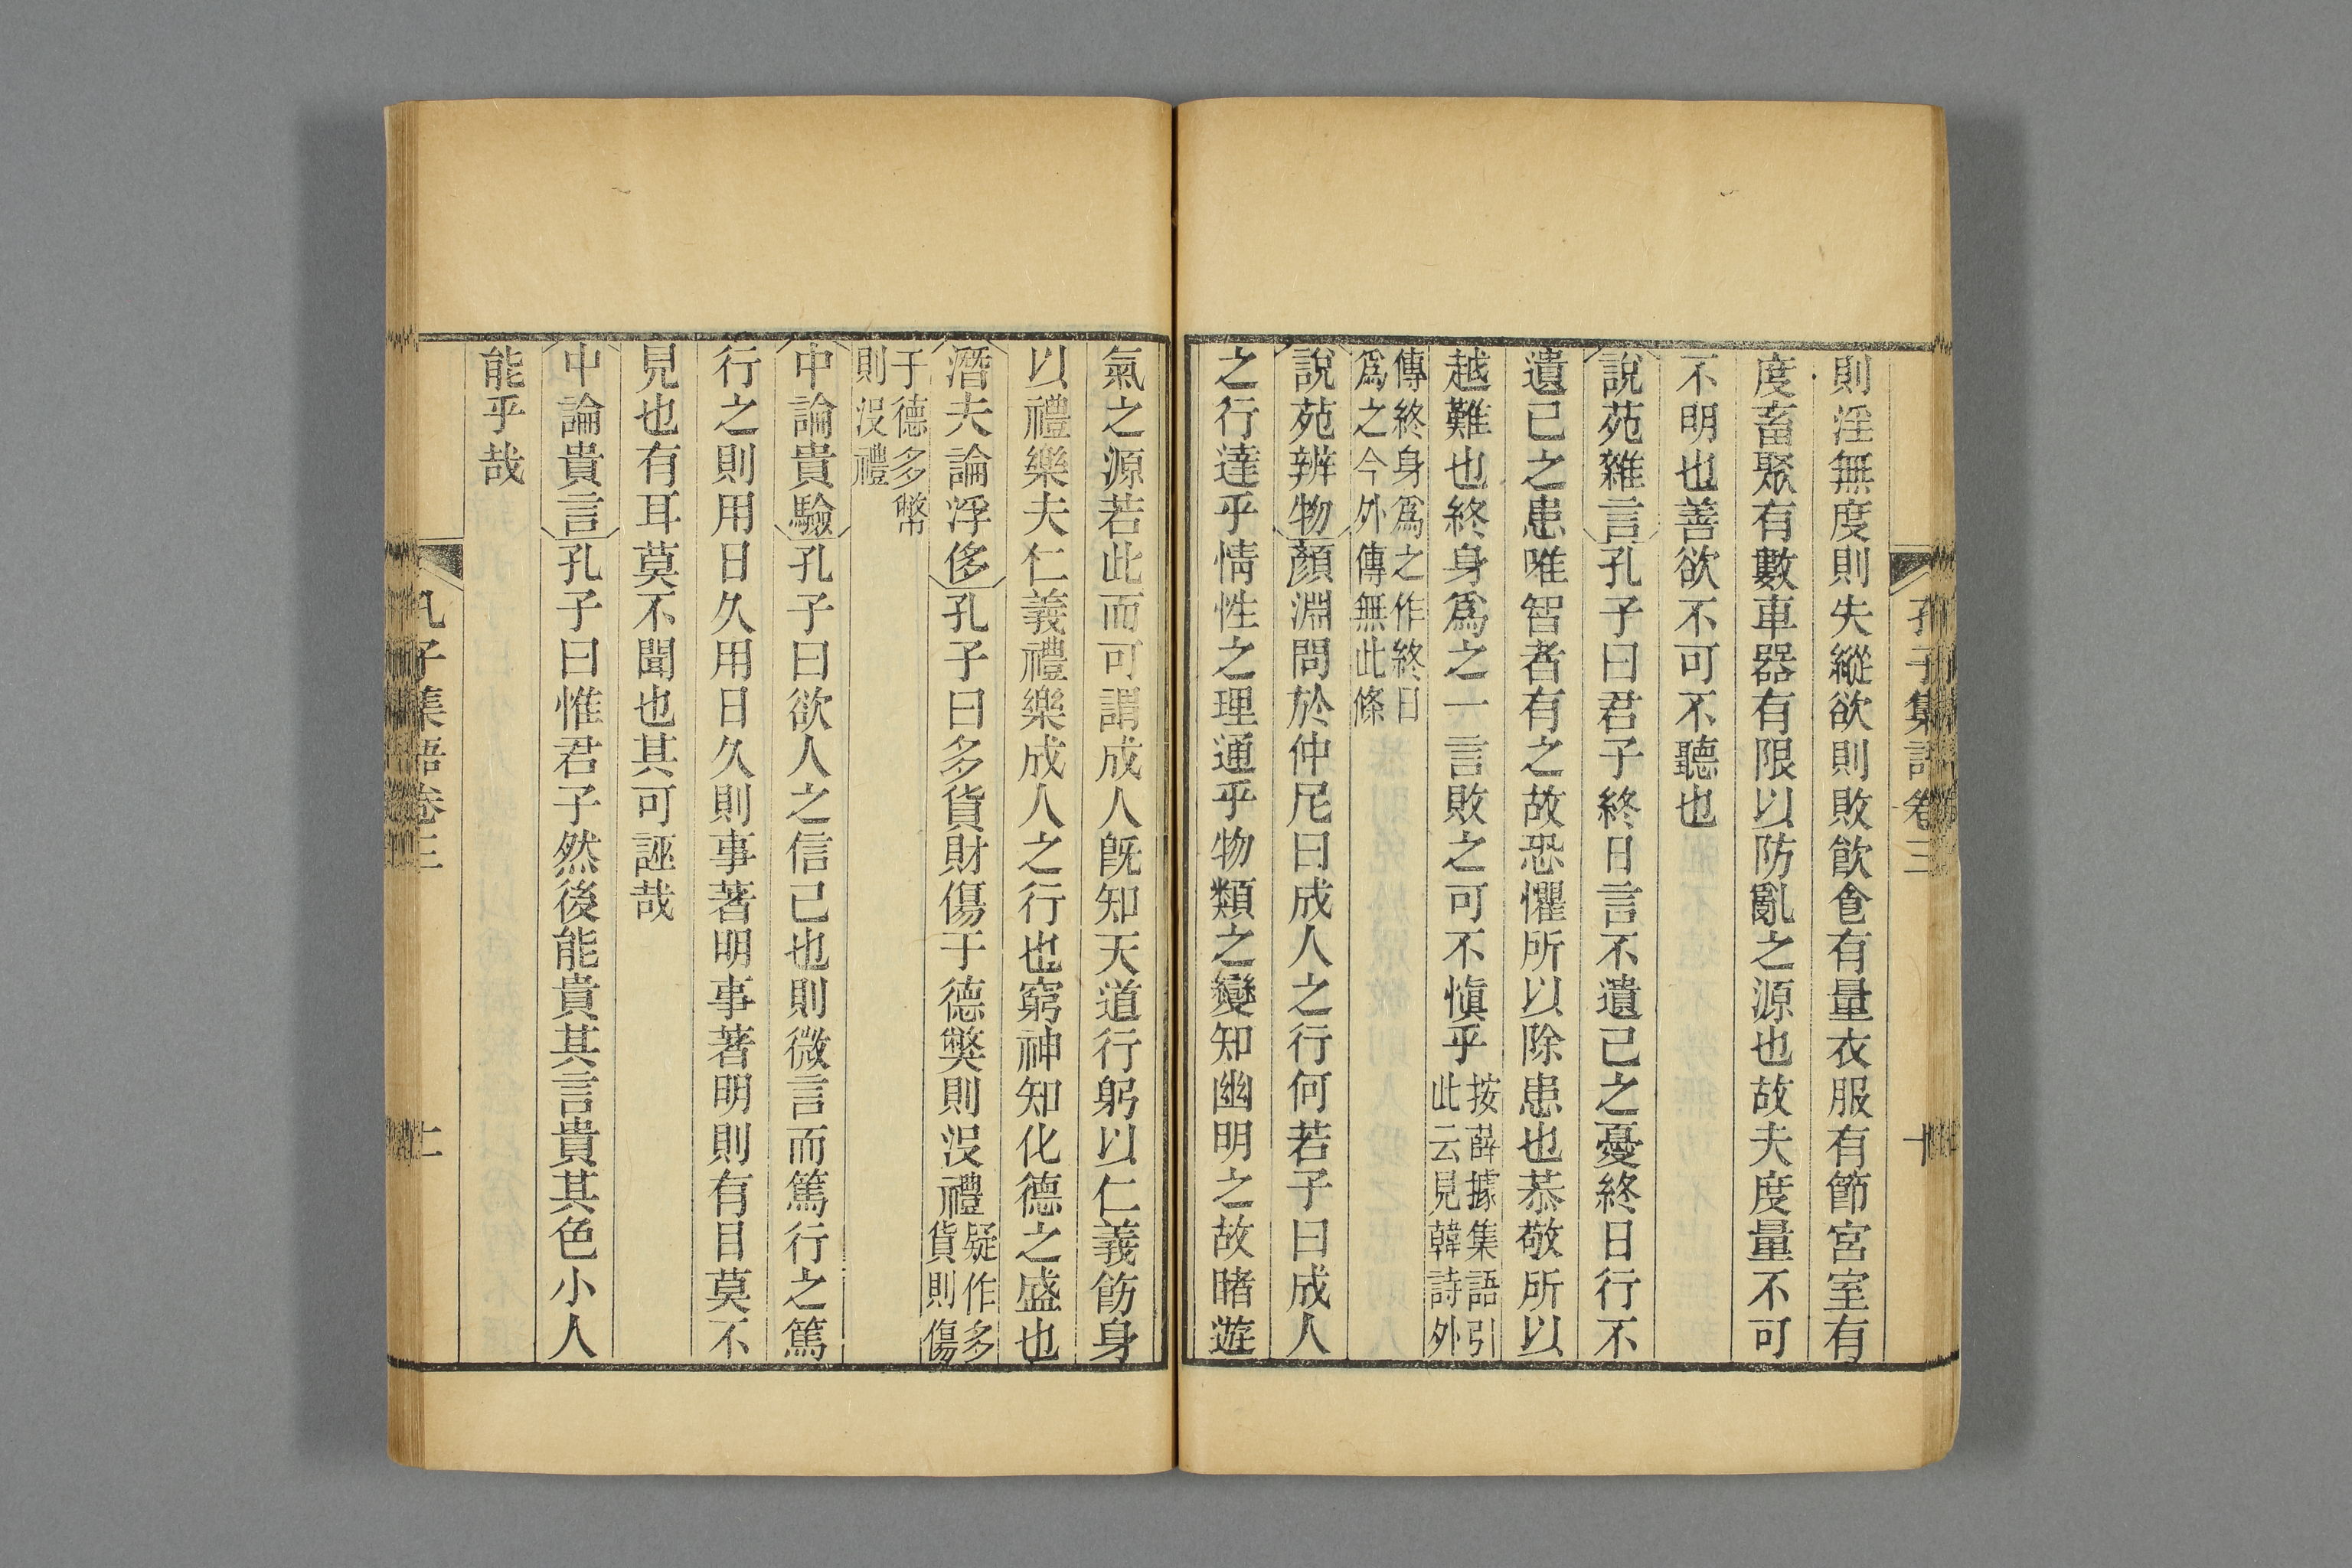 孔子集語卷三
十
則淫無度則失縱欲則敗飮食有量衣服有節宮室有
度畜聚有數車器有限以防亂之源也故夫度量不可
不明也善欲不可不聽也
說苑雜言孔子曰君子終日言不遺己之憂終日行不
遺己之患唯智者有之故恐懼所以除患也恭敬所以
越難也終身爲之一言敗之可不愼乎按薛據集語引此云見韓詩外
傳終身爲之作終日
爲之今外傳無此條
說苑辨物顏淵問於仲尼曰成人之行何若子曰成人
之行達乎情性之理通乎物類之變知幽明之故睹遊
氣之源若此而可謂成人旣知天道行躬以仁義飭身
以禮樂夫仁義禮樂成人之行也窮神知化德之盛也
潛夫論浮侈孔子曰多貨財傷于德獘則沒禮疑作多貨則傷
于德多幣
則沒禮
中論貴驗孔子曰欲人之信己也則微言而篤行之篤
行之則用日久用日久則事著明事著明則有目莫不
見也有耳莫不聞也其可誣哉
中論貴言孔子曰惟君子然後能貴其言貴其色小人
能乎哉
孔子集語卷三